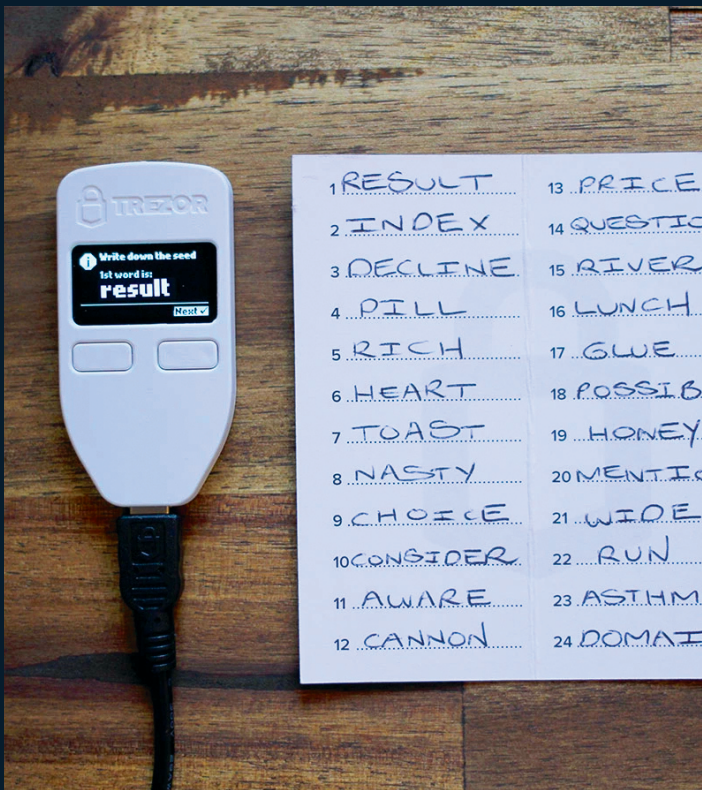 TREZOR
Write down the seed
1st word is:
result
Next ✓
1 RESULT
2 INDEX
3 DECLINE
4 PILL
5 RICH
6 HEART
7 TOAST
8 NASTY
9 CHOICE
10 CONSIDER
11 AWARE
12 CANNON
13 PRICE
14 QUESTIO
15 RIVER
16 LUNCH
17 GLUE
18 POSSIB
19 HONEY
20 MENTIO
21 WIDE
22 RUN
23 ASTHM
24 DOMAI